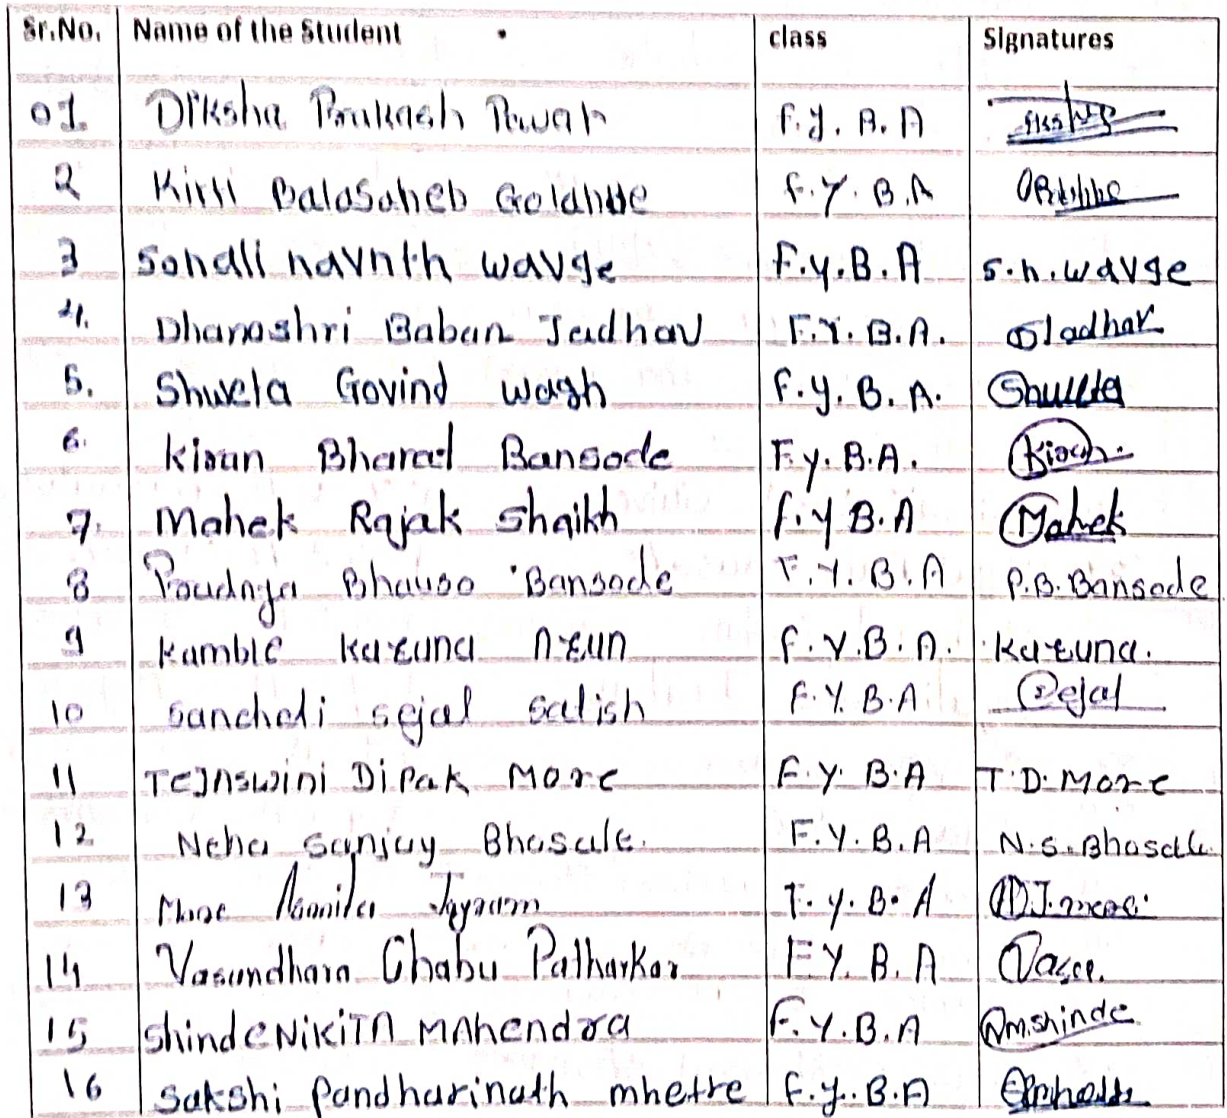 Sr.No. Name of the Student class Signatures
01 Diksha Prakash Pawar F.Y.B.A
2 Kirti Balasaheb F.Y.B.A
3 Sonali navnth wavge F.Y.B.A S.n.wavge
4. Dhanashri Baban Jadhav F.Y.B.A. Jadhav
5. Shweta Govind wagh F.Y.B.A. Shweta
6. Kiran Bharat Bansode F.Y.B.A. Kiran
7. Mahek Rajak Shaikh F.Y B.A Mahek
8 Pradnya Bhauso Bansode F.Y.B.A P.B.Bansode
9 Kamble Karuna Arun F.Y.B.A. Karuna.
10 sancheti sejal satish F.Y.B.A Sejal
11 Tejaswini Dipak More F.Y.B.A T.D.More
12 Neha Sanjay Bhosale. F.Y.B.A N.S.Bhosale
13 More Jayram F.Y.B.A
14 Vasundhara Chabu Patharkar F.Y.B.A
15 Shinde NIKITA MAhendra F.Y.B.A N.M.shinde
16 Sakshi Pandharinath mhetre F.Y.B.A